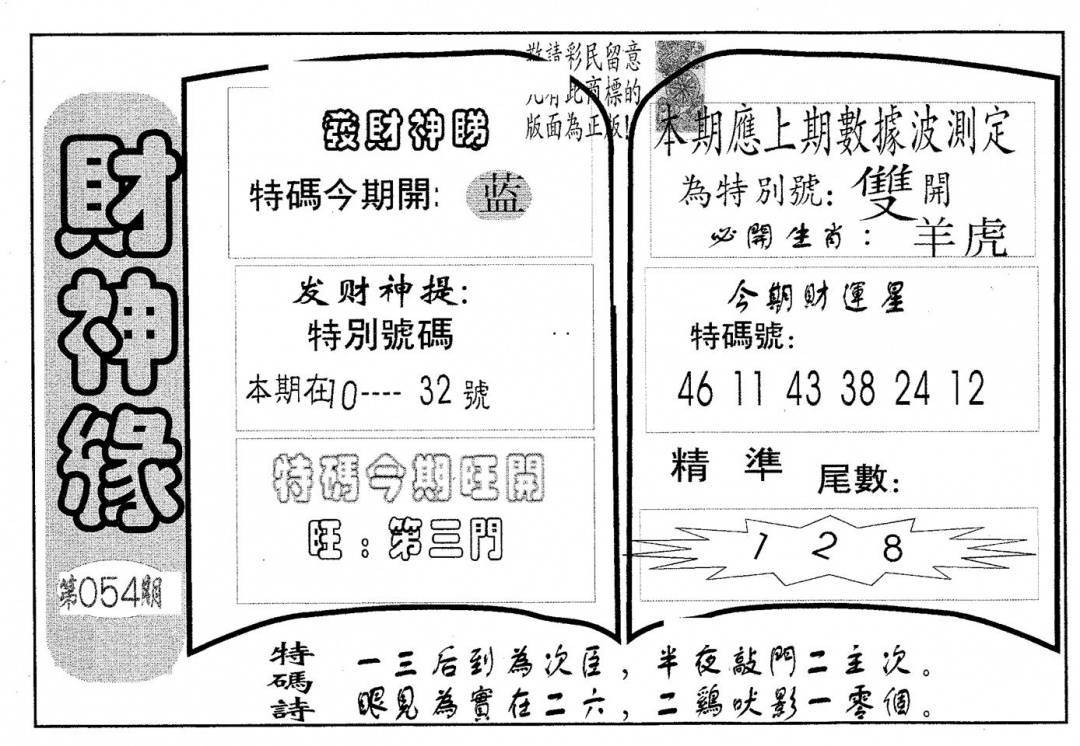 財神緣
第054期
敬請彩民留意
凡有此商標的
版面為正版!
發財神睇
特碼今期開: 蓝
发财神提:
特別號碼
本期在10---- 32 號
特碼今期旺開
旺：第三門
本期應上期數據波測定
為特別號: 雙開
必開生肖： 羊虎
今期財運星
特碼號:
46 11 43 38 24 12
精 準 尾數:
1 2 8
特碼詩
一三后到為次臣，半夜敲門二主次。
眼見為實在二六，二鷄吠影一零個。